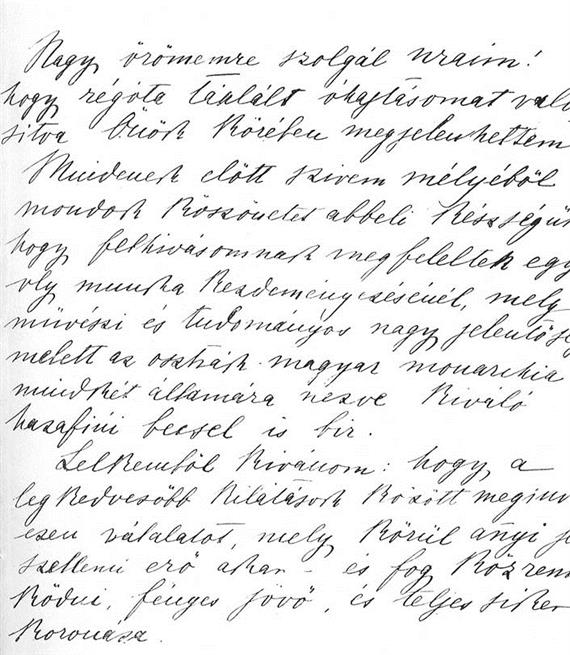 Nagy örömemre szolgál uraim!
hogy régóta táplált óhajtásomat való
sitva Önök körében megjelenhettem
Mindenek előtt szivem mélyéből
mondok köszönetet abbeli készségü
hogy felhivásomnak megfeleltek egy
oly munka kezdeményezésénél, mely
művészi és tudományos nagy jelentőség
melett az osztrák-magyar monarchia
mindkét államára nézve kiváló
hazafiui becsel is bir.
Lelkemből kivánom: hogy a
legkedvesőbb kilátások között megin
ezen válalatot, mely körül anyi
szellemi erő akar - és fog közrem
ködni, fényes jövő, és teljes siker
koronáza.